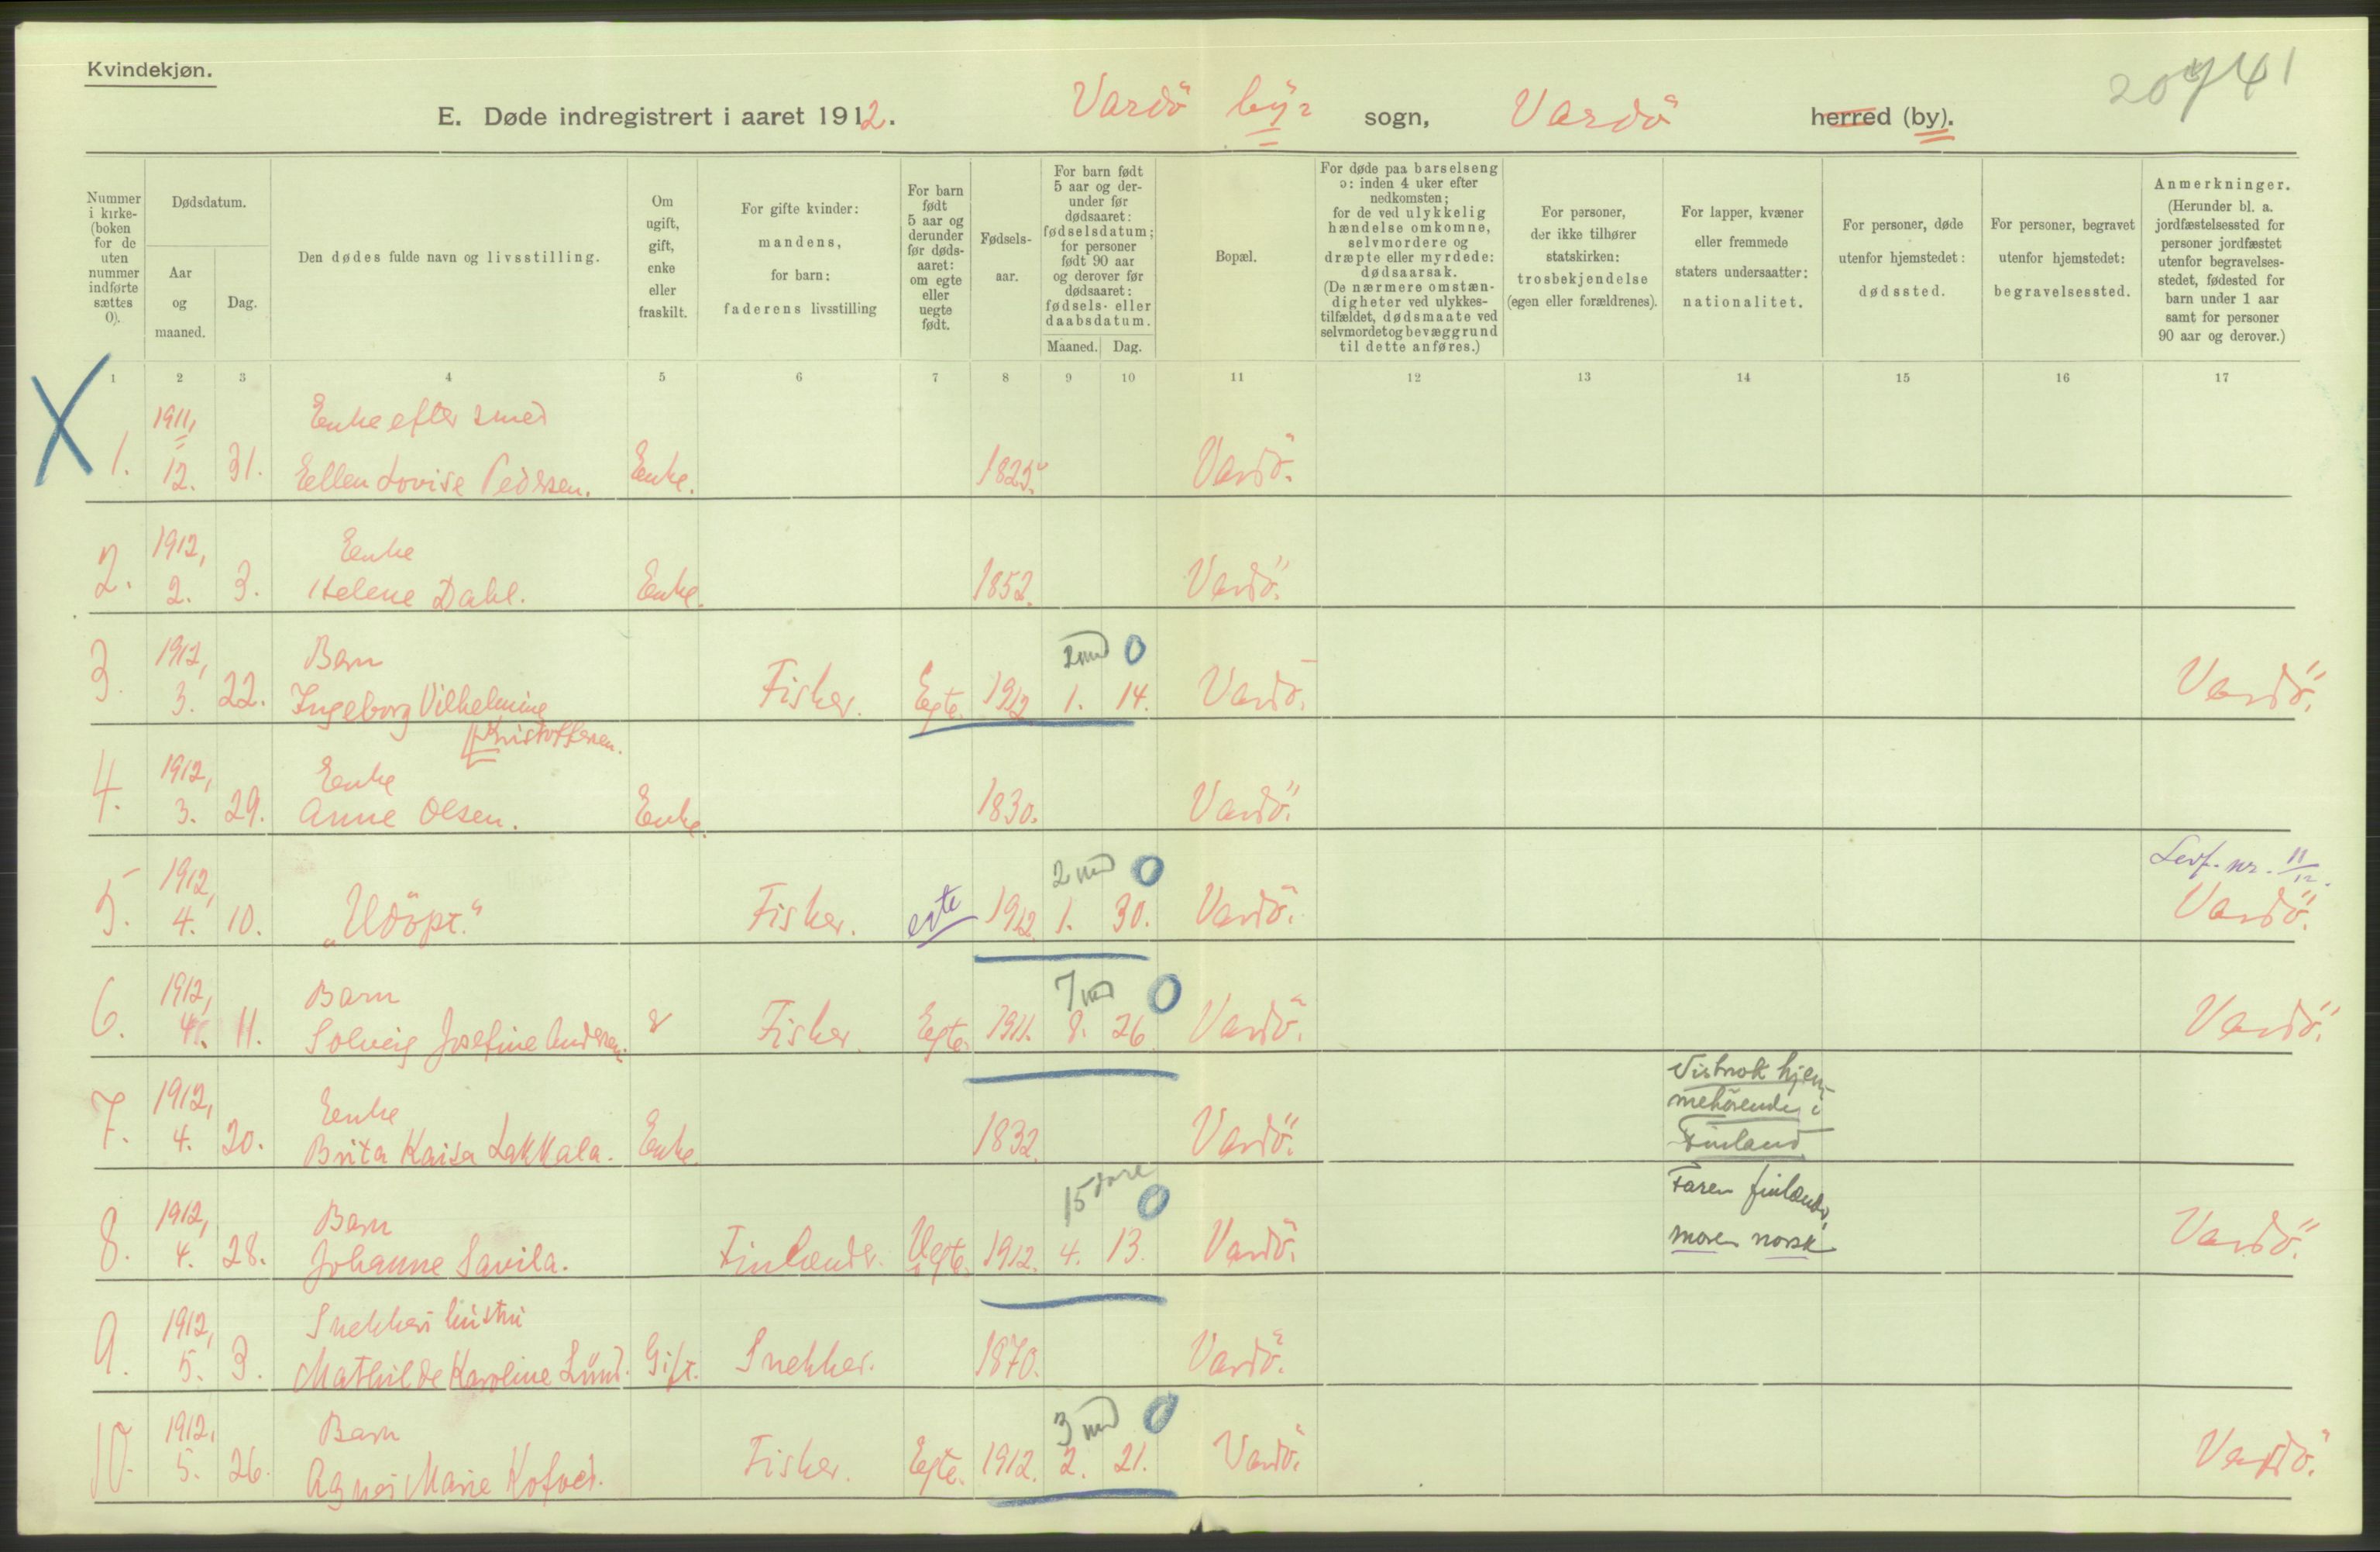 Kvindekjøn.
E. Døde indregistrert i aaret 1912. Vardö by's sogn, Vardö herred (by).
Nummer i kirke-(boken for de uten nummer indførte sættes 0).
Dødsdatum.
Aar og maaned.
Dag.
Den dødes fulde navn og livsstilling.
Om ugift, gift, enke eller fraskilt.
For gifte kvinder: mandens, for barn: faderens livsstilling
For barn født 5 aar og derunder før døds-aaret: om egte eller uegte født.
Fødsels-aar.
For barn født 5 aar og der-under før dødsaaret: fødselsdatum; for personer født 90 aar og derover før dødsaaret: fødsels- eller daabsdatum.
Maaned. Dag.
Bopæl.
For døde paa barselseng ɔ: inden 4 uker efter nedkomsten; for de ved ulykkelig hændelse omkomne, selvmordere og dræpte eller myrdede: dødsaarsak. (De nærmere omstæn-digheter ved ulykkes-tilfældet, dødsmaate ved selvmordet og bevæggrund til dette anføres.)
For personer, der ikke tilhører statskirken: trosbekjendelse (egen eller forældrenes).
For lapper, kvæner eller fremmede staters undersaatter: nationalitet.
For personer, døde utenfor hjemstedet: dødssted.
For personer, begravet utenfor hjemstedet: begravelsessted.
Anmerkninger. (Herunder bl. a. jordfæstelsessted for personer jordfæstet utenfor begravelses-stedet, fødested for barn under 1 aar samt for personer 90 aar og derover.)
1 2 3 4 5 6 7 8 9 10 11 12 13 14 15 16 17
1911, Enke efter smed
1. 12. 31. Ellen Lovise Pedersen. Enke. 1825. Vardö.
1912, Enke
2. 2. 3. Helene Dahl. Enke. 1852. Vardö.
1912, Barn 2 md 0
3. 3. 22. Ingeborg Vilhelmine Fisker. Egte. 1912 1. 14. Vardö. Vardö.
Kristoffersen.
1912, Enke
4. 3. 29. Anne Olsen. Enke. 1830. Vardö.
1912, 2 md 0
5. 4. 10. "Udöpt." Fisker. egte 1912. 1. 30. Vardö. Vardö.
1912, Barn 7 md 0
6. 4. 11. Solveig Josefine Andersen. Fisker. Egte. 1911. 8. 26. Vardö. Vardö.
1912, Enke Vistnok hjem-
mehörende i
7. 4. 20. Brita Kaisa Lakkala. Enke. 1832. Vardö. Finland
1912, Barn 15 0 Faren finlænder,
8. 4. 28. Johanne Savila. Finlænder. Uegte. 1912. 4. 13. Vardö. moren norsk Vardö.
1912, Snekkers hustru
9. 5. 3. Mathilde Karoline Lund. Gift. Snekker. 1870. Vardö.
1912, Barn 3 md 0
10. 5. 26. Agnes Marie Kofoed. Fisker. Egte. 1912. 2. 21. Vardö. Vardö.